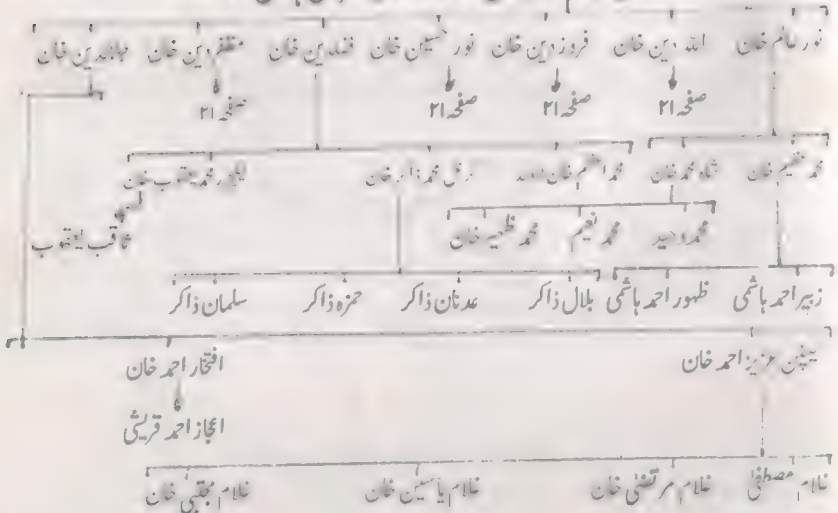 نور عالم خان اللہ دین خان فروز دین خان نور حسین خان فضلدین خان مظفر دین خان مجاہدین خان
صفحہ ۲۱ صفحہ ۲۱ صفحہ ۲۱ صفحہ ۲۱
محمد عظیم خان شاہ محمد خان محمد اعظم خان کرنل محمد ذاکر خان محمد یعقوب خان
محمد وحید محمد نعیم محمد ظہیر خان ثاقب یعقوب
زبیر احمد ہاشمی ظہور احمد ہاشمی بلال ذاکر عدنان ذاکر حمزہ ذاکر سلمان ذاکر
کیپٹن عزیز احمد خان افتخار احمد خان
اعجاز احمد قریشی
غلام مصطفیٰ غلام مرتضیٰ خان غلام یاسین خان غلام مجتبیٰ خان